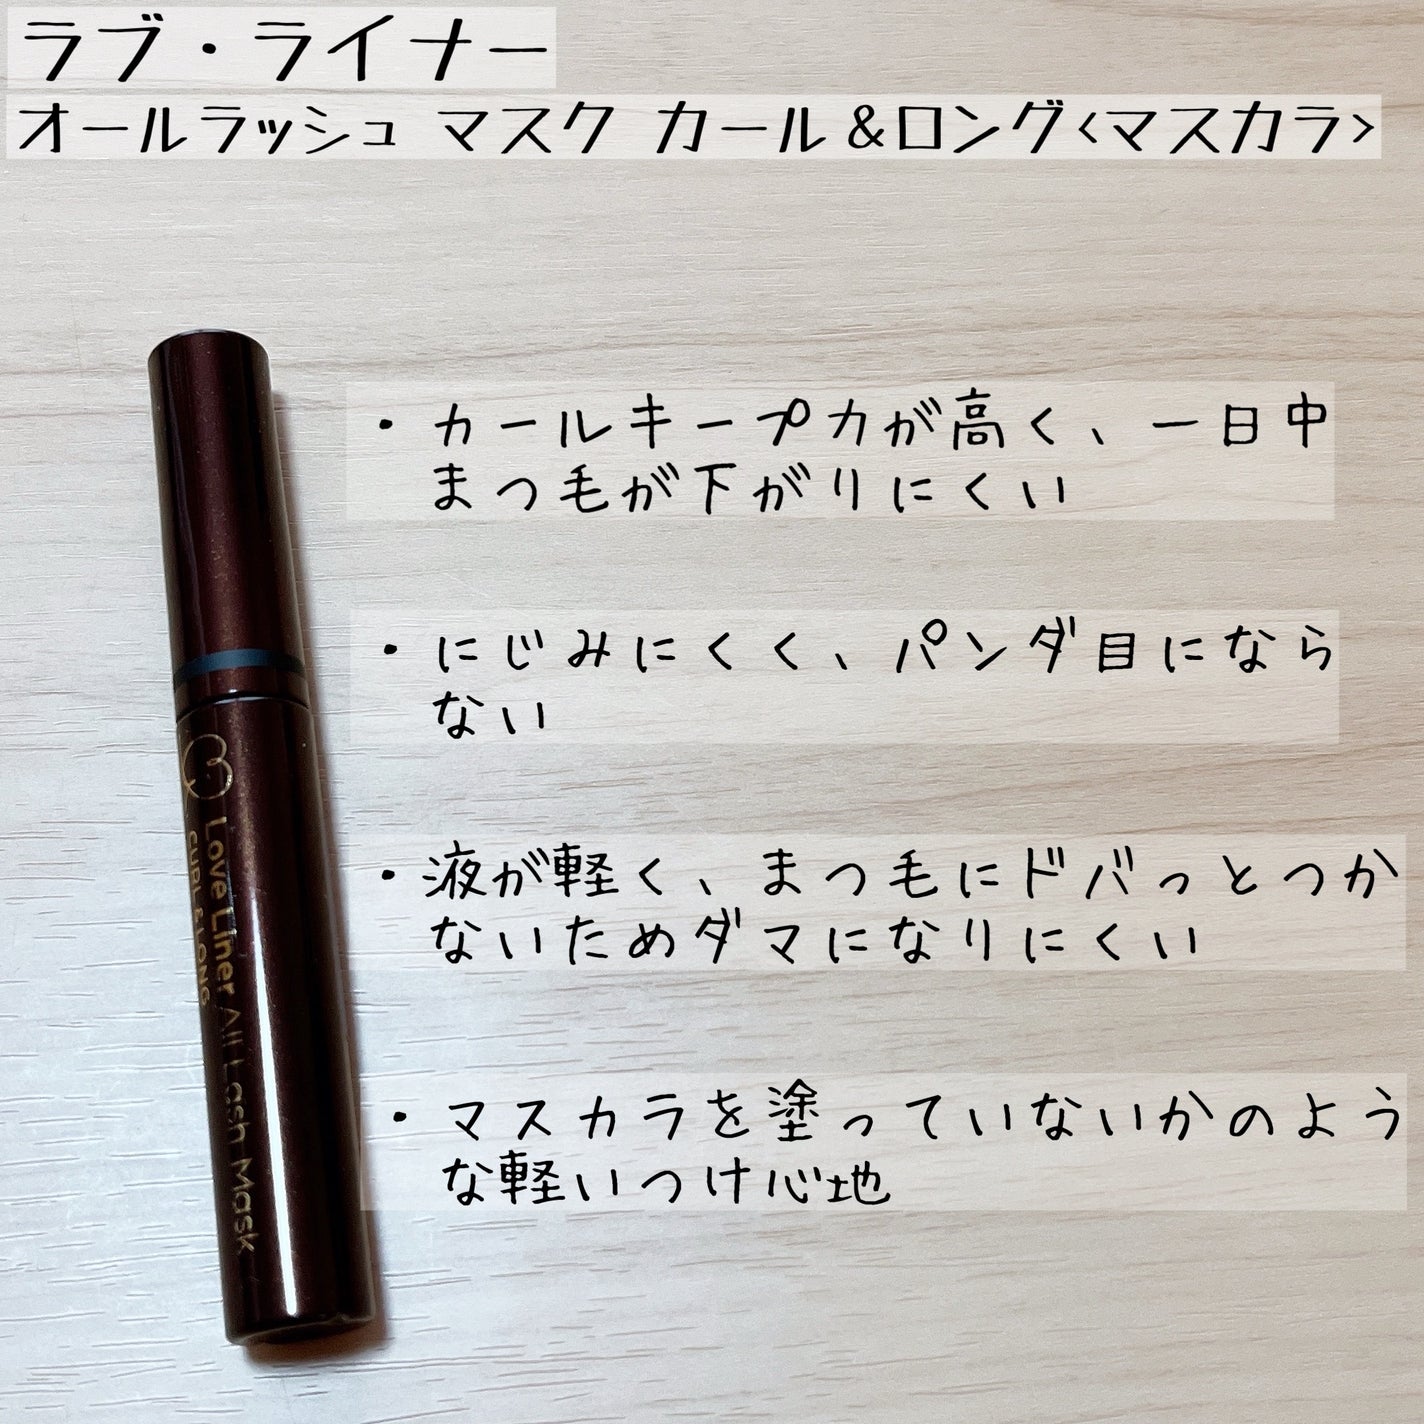 ラブ・ライナー
オールラッシュ マスク カール&ロング<マスカラ>
・カールキープ力が高く、一日中
まつ毛が下がりにくい
・にじみにくく、パンダ目になら
ない
・液が軽く、まつ毛にドバっとつか
ないためダマになりにくい
・マスカラを塗っていないかのよう
な軽いつけ心地
Love Liner All Lash Mask
CURL & LONG